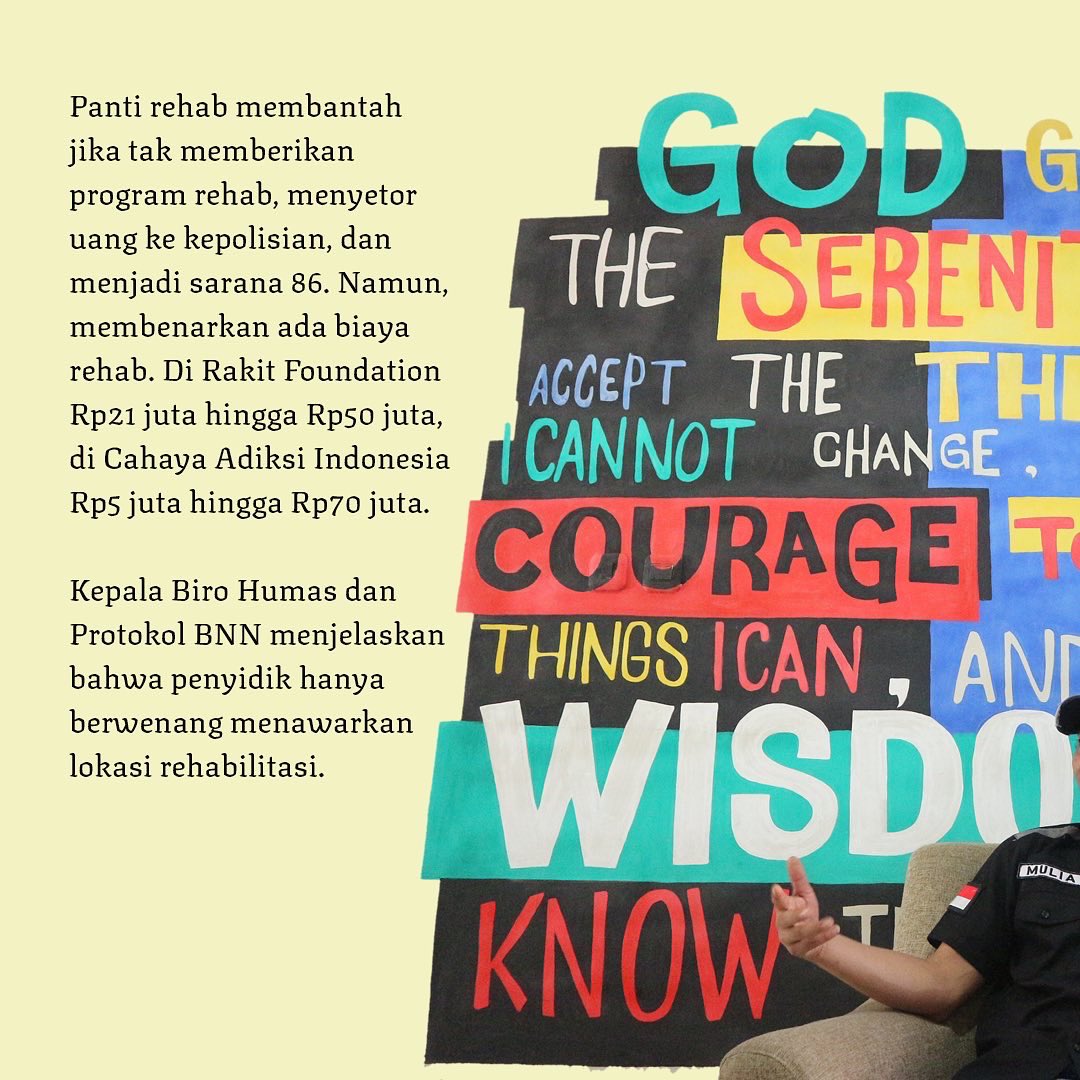 Panti rehab membantah
jika tak memberikan
program rehab, menyetor
uang ke kepolisian, dan
menjadi sarana 86. Namun,
membenarkan ada biaya
rehab. Di Rakit Foundation
Rp21 juta hingga Rp50 juta,
di Cahaya Adiksi Indonesia
Rp5 juta hingga Rp70 juta.
Kepala Biro Humas dan
Protokol BNN menjelaskan
bahwa penyidik hanya
berwenang menawarkan
lokasi rehabilitasi.
GOD G
THE SERENIT
ACCEPT THE THI
I CANNOT CHANGE,
COURAGE TO
THINGS I CAN, AND
WISDO
KNOW T
MULIA